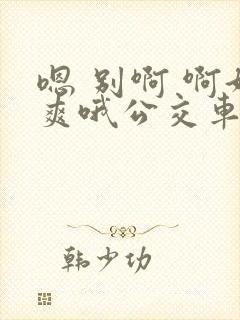 嗯 别啊 啊好
爽哦公交车
韩少功